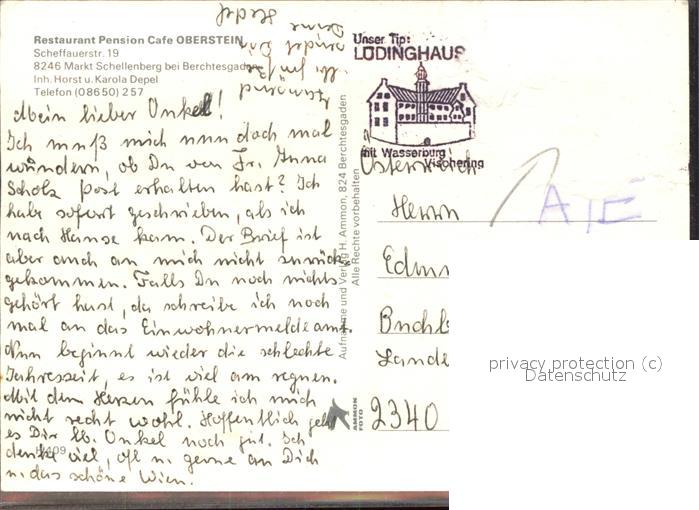 Restaurant Pension Cafe OBERSTEIN
Scheffauerstr. 19
8246 Markt Schellenberg bei Berchtesgaden
Inh. Horst u. Karola Depel
Telefon (08650) 257
Mein lieber Onkel!
Ich muß mich nun doch mal
wundern, ob Du von Fr. Anna
Scholz Post erhalten hast? Ich
habe sofort geschrieben, als ich
nach Hause kam. Der Brief ist
aber auch an mich nicht zurück
gekommen. Falls Du noch nichts
gehört hast, da schreibe ich noch
mal an das Einwohnermeldeamt.
Nun beginnt wieder die schlechte
Jahreszeit, es ist viel am regnen.
Mit dem Herzen fühle ich mich
nicht recht wohl. Hoffentlich geht
es Dir lb. Onkel noch gut. Ich
denke viel, oft u. gerne an Dich
u. das schöne Wien.
Deine
Aufnahme und Verlag H. Ammon, 824 Berchtesgaden
Alle Rechte vorbehalten
AMMON
FOTO
Unser Tip:
LÜDINGHAUS
mit Wasserburg
Vischering
Österreich
A/E
Herrn
2340
privacy protection (c)
Datenschutz